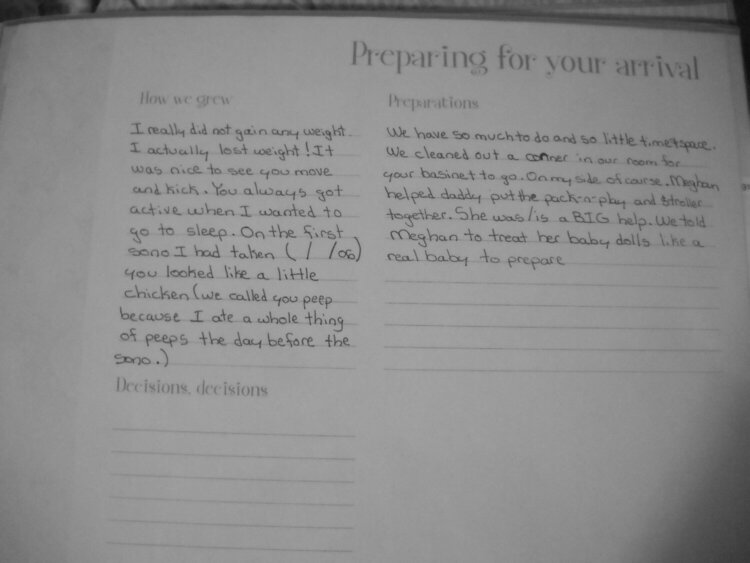 Preparing for your arrival
How we grew
I really did not gain any weight.
I actually lost weight! It
was nice to see you move
and kick. You always got
active when I wanted to
go to sleep. On the first
sono I had taken ( / /06)
you looked like a little
chicken (we called you peep
because I ate a whole thing
of peeps the day before the
sono.)
Decisions, decisions
Preparations
We have so much to do and so little time&space.
We cleaned out a corner in our room for
your basinet to go. On my side of course. Meghan
helped daddy put the pack-n-play and stroller
together. She was/is a BIG help. We told
Meghan to treat her baby dolls like a
real baby to prepare